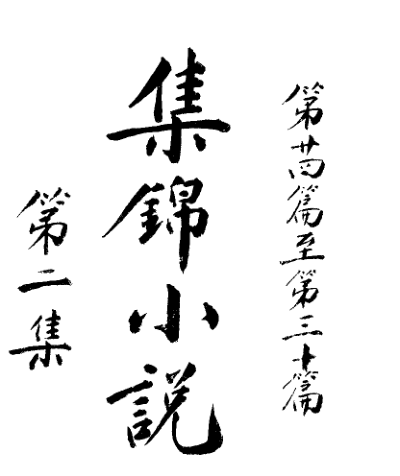 第廿四篇至第三十篇
集錦小說
第二集